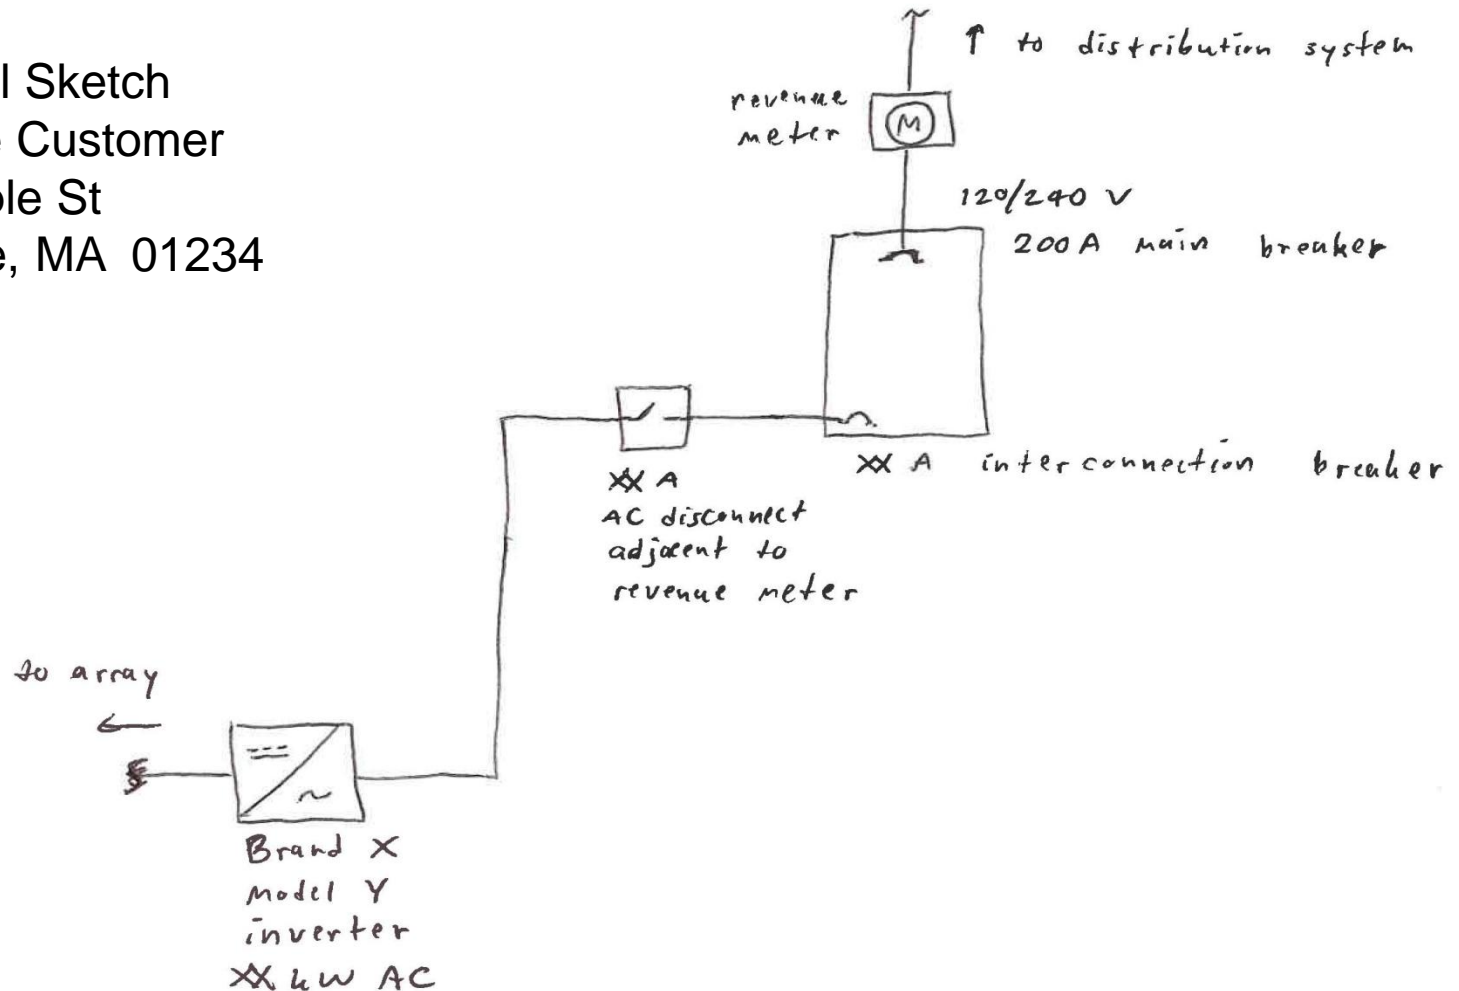 l Sketch
e Customer
ole St
e, MA 01234
↑ to distribution system
revenue
meter
M
120/240 V
200A main breaker
XX A interconnection breaker
XX A
AC disconnect
adjacent to
revenue meter
to array
←
Brand X
Model Y
inverter
XX kW AC